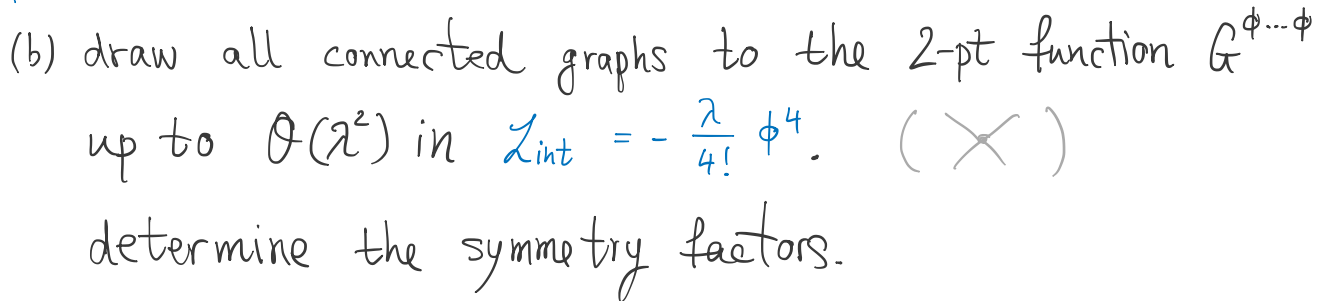 (b) draw all connected graphs to the 2-pt function G^{ϕ...ϕ}
up to O(λ²) in ℒ_int = - λ/4! ϕ⁴. ( × )
determine the symmetry factors.